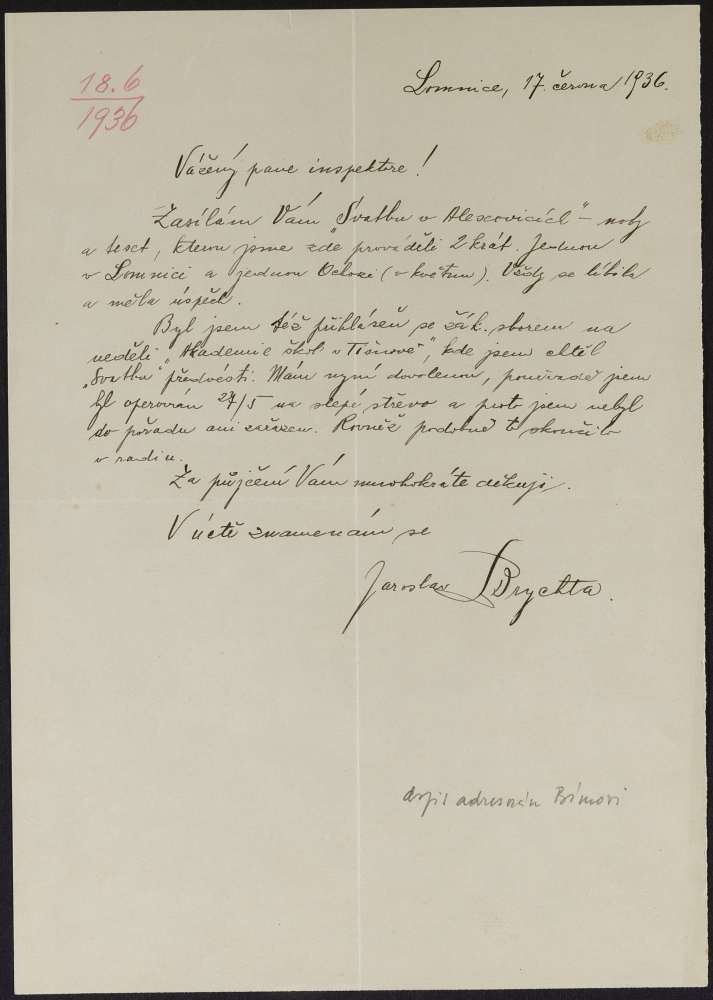 18.6
1936
Lomnice, 17. června 1936.
Vážený pane inspektore!
Zasílám Vám „Svatbu v Alexovicích" – noty
a text, kterou jsme zde prováděli 2krát. Jednou
v Lomnici a jednou Ochozi (v květnu). Vždy se líbila
a měla úspěch.
Byl jsem též přihlášen se žák. sborem na
neděli „Akademie škol v Tišnově", kde jsem chtěl
„Svatbu" předvésti. Mám nyní dovolenou, poněvadž jsem
byl operován 27/5 na slepé střevo a proto jsem nebyl
do pořadu ani zařazen. Rovněž podobně to skončilo
v radiu.
Za půjčení Vám mnohokráte děkuji.
V úctě znamenám se
Jaroslav Brychta.
dopis adresován Bímovi